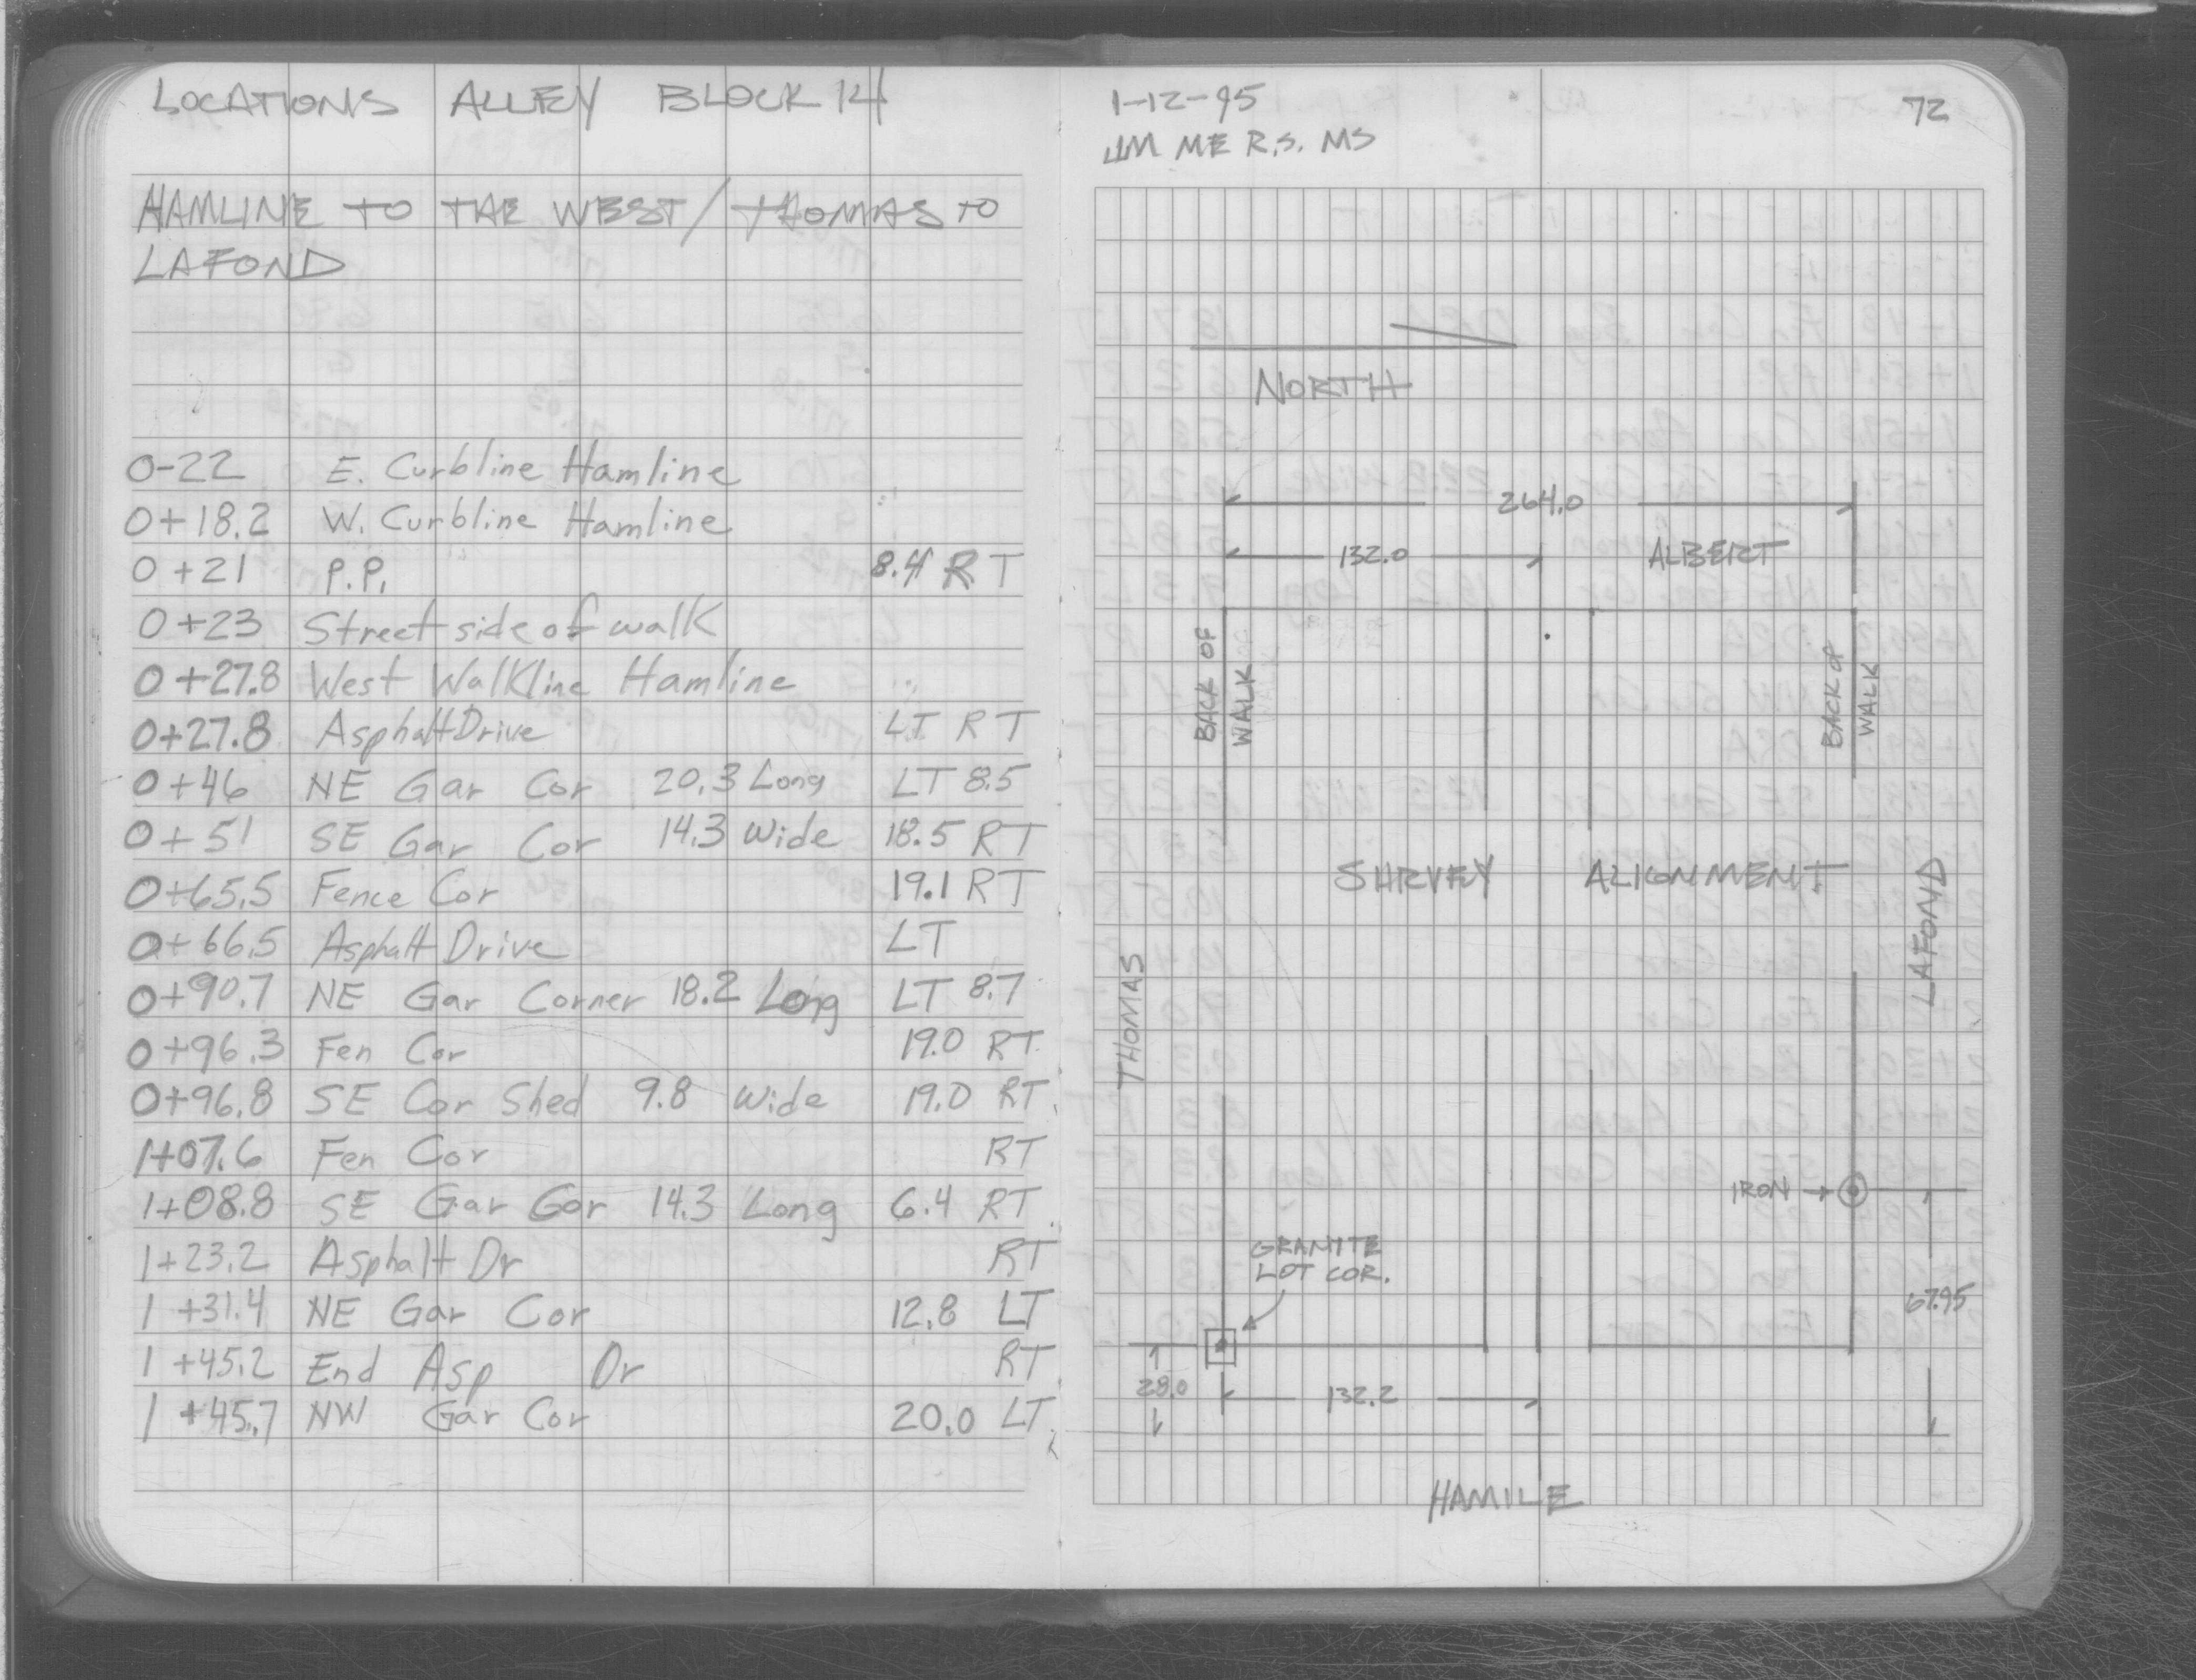 LOCATIONS ALLEY BLOCK 14
HAMLINE TO THE WEST/THOMAS TO
LAFOND
0-22 E. Curbline Hamline
0+18.2 W. Curbline Hamline
0+21 P.P. 8.4 RT
0+23 Street side of walk
0+27.8 West Walkline Hamline
0+27.8 Asphalt Drive LT RT
0+46 NE Gar Cor 20.3 Long LT 8.5
0+51 SE Gar Cor 14.3 Wide 18.5 RT
0+65.5 Fence Cor 19.1 RT
0+66.5 Asphalt Drive LT
0+90.7 NE Gar Corner 18.2 Long LT 8.7
0+96.3 Fen Cor 19.0 RT
0+96.8 SE Cor Shed 9.8 Wide 19.0 RT
1+07.6 Fen Cor RT
1+08.8 SE Gar Cor 14.3 Long 6.4 RT
1+23.2 Asphalt Dr RT
1+31.4 NE Gar Cor 12.8 LT
1+45.2 End Asp Dr RT
1+45.7 NW Gar Cor 20.0 LT
1-12-95
72
JM ME R.S. MS
NORTH
264.0
132.0
ALBERT
BACK OF
WALK
BACK OF
WALK
SURVEY ALIGNMENT
LAFOND
THOMAS
IRON
GRANITE
LOT COR.
67.95
28.0
132.2
HAMILE